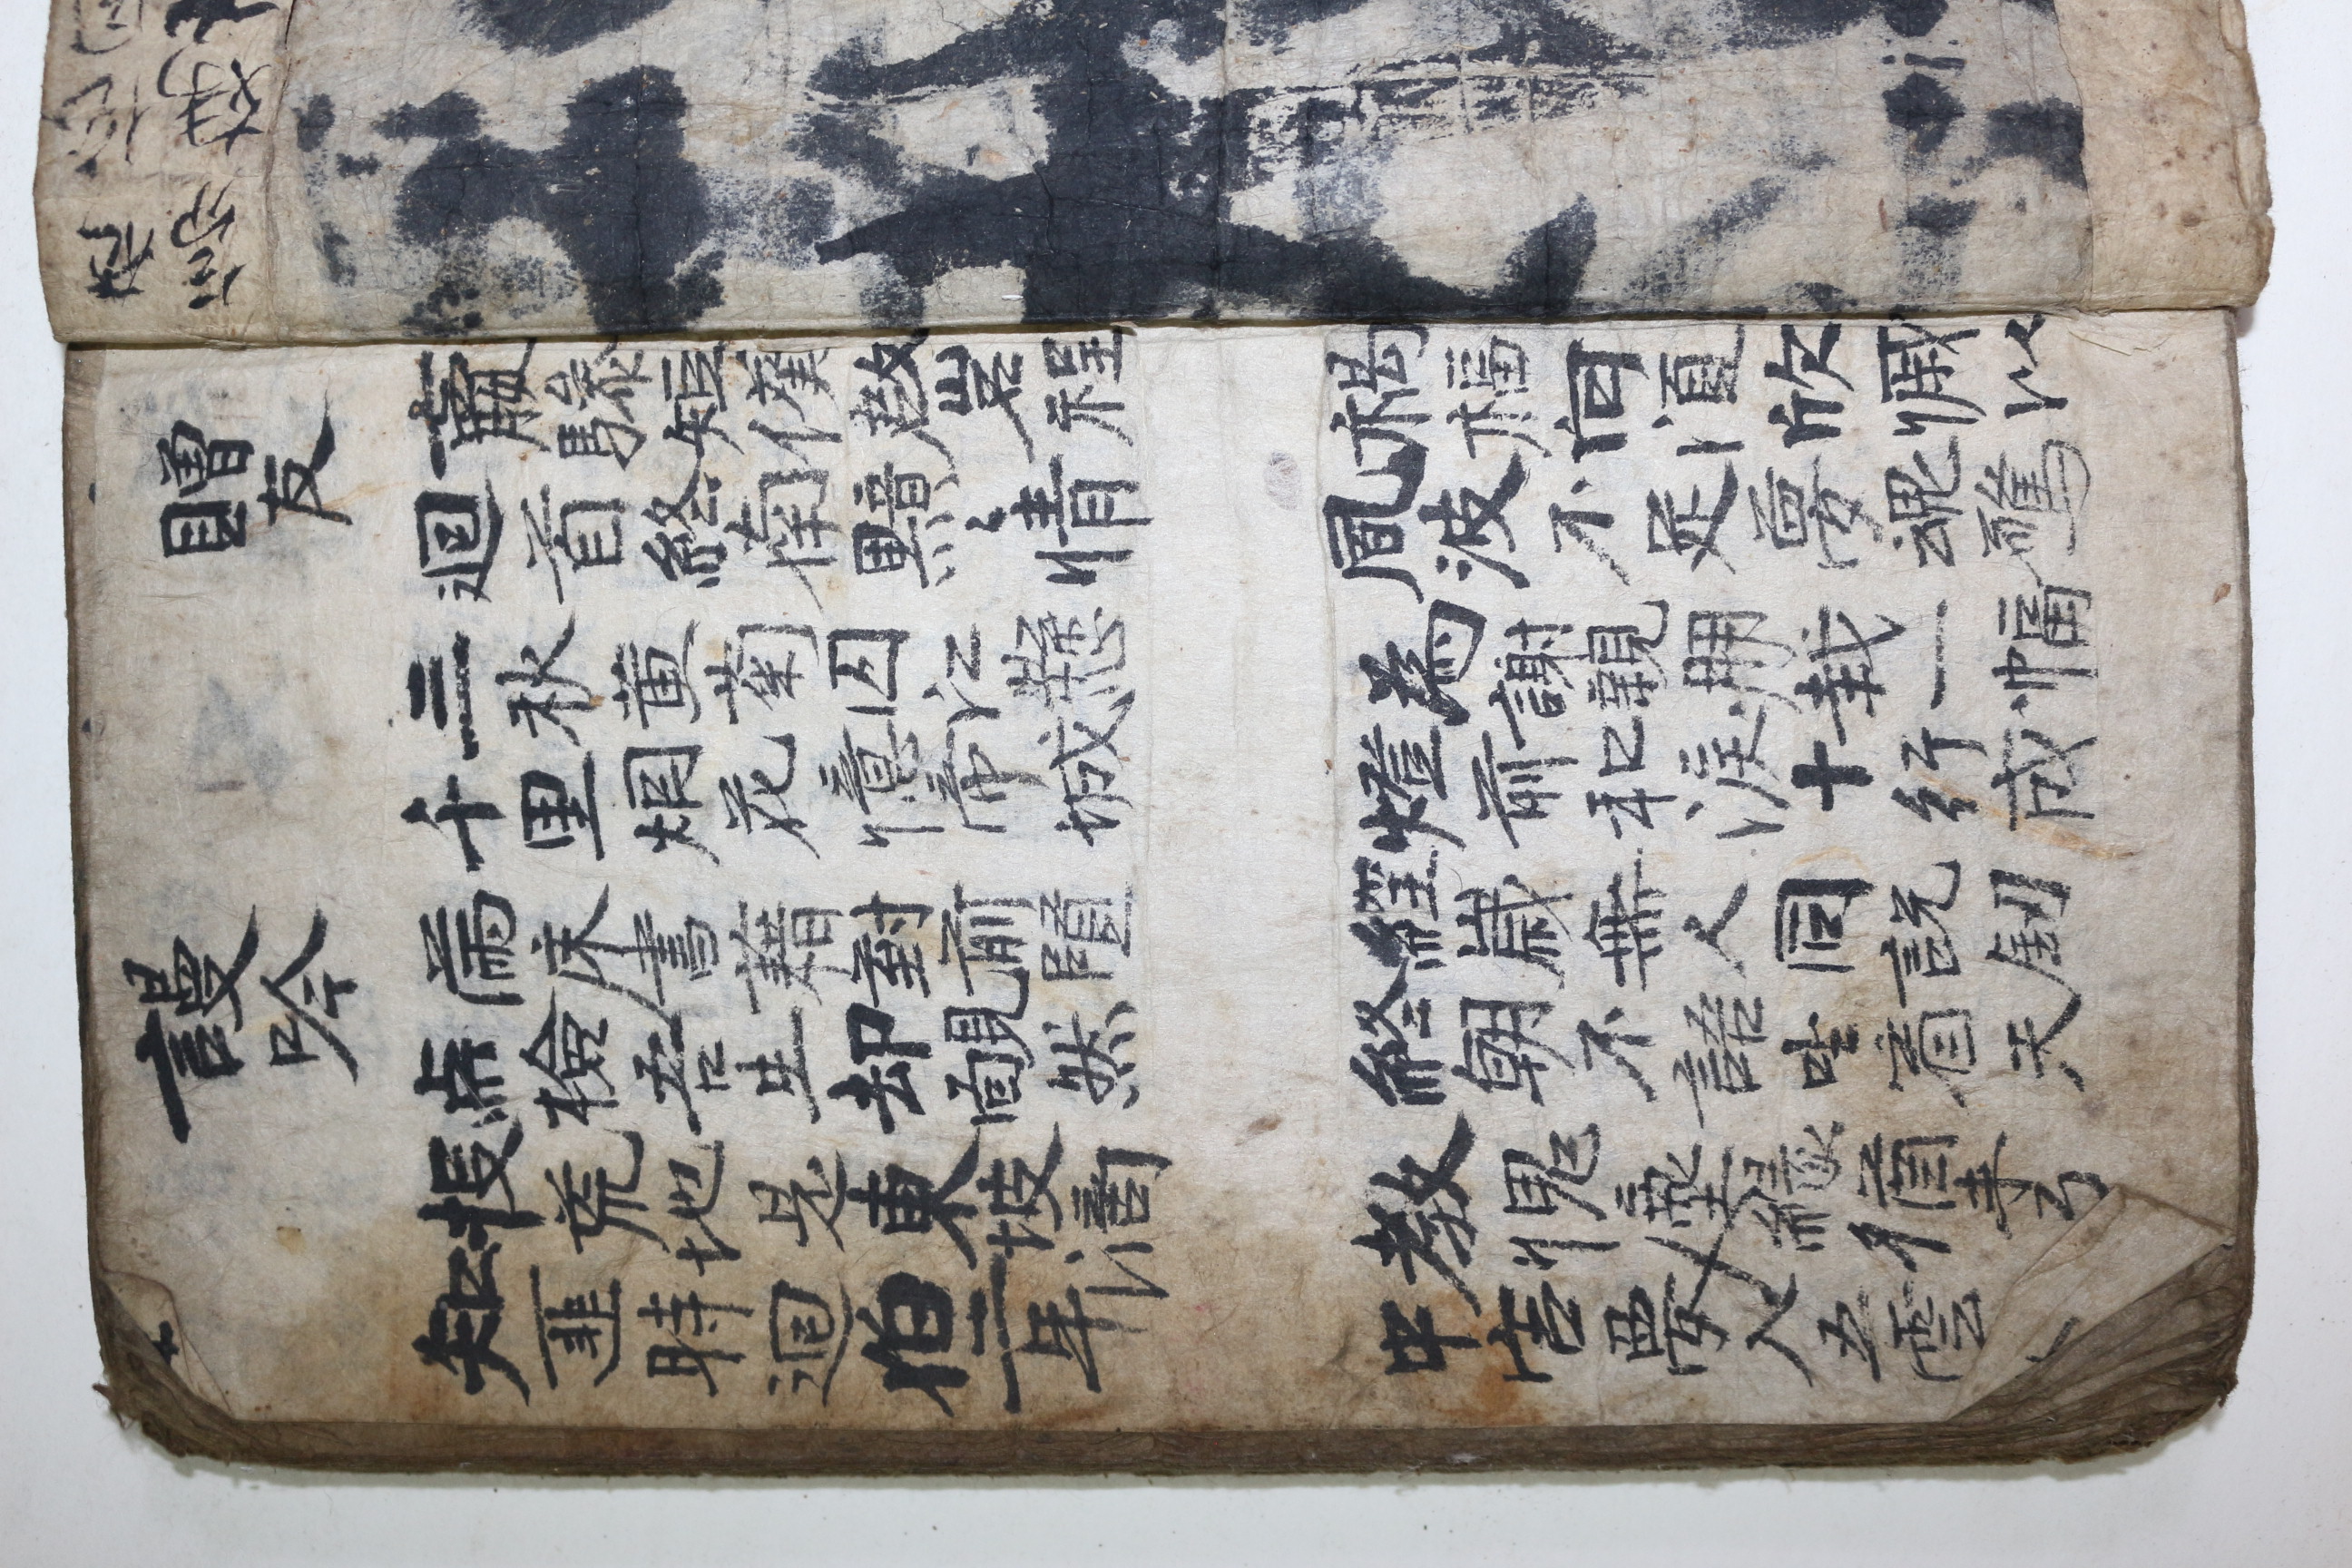 贈友
羸驂短僕啟岩程 禍福向須欣慽以
迴首終南黯〻情 風波不足夢魂驚
三秋黃菊囚江 為謝親朋裁一幅
千里烟花憶帝城 燈前和淚十行成
謾吟
滿床書藉對前賢 經歲無人同說釖
点檢吾生却靦然 終朝不語坐看天
投荒地是東坡謫 教愧塵緣猶未了
知匪時迴伯二年 中宵夢入五雲